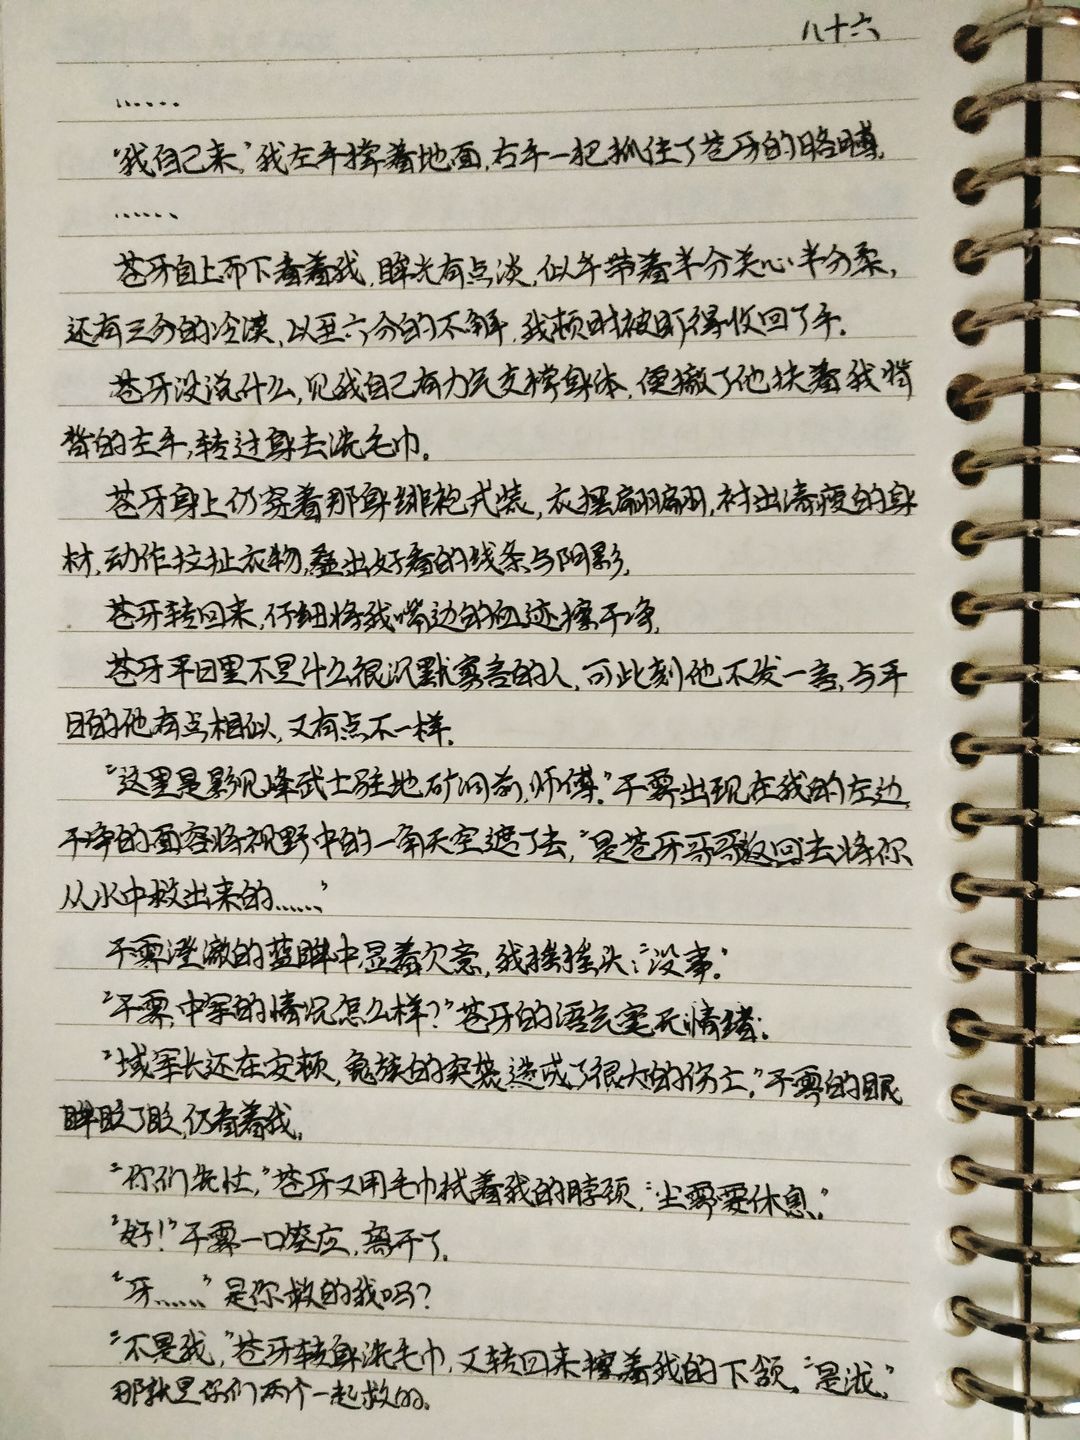 八十六
……
“我自己来，”我左手撑着地面，右手一把抓住了苍牙的胳膊。
……
苍牙自上而下看着我，眸光有点淡，似乎带着半分关心半分柔，
还有三分的冷漠，以至六分的不解，我顿时被盯得收回了手。
苍牙没说什么，见我自己有力气支撑身体，便撤了他扶着我脊
背的左手，转过身去洗毛巾。
苍牙身上仍穿着那身绯袍式装，衣摆翩翩，衬出清瘦的身
材，动作拉扯衣物，叠出好看的线条与阴影。
苍牙转回来，仔细将我嘴边的血迹擦干净。
苍牙平日里不是什么很沉默寡言的人，可此刻他不发一言，与平
日的他有点相似，又有点不一样。
“这里是影见峰武士驻地矿洞前，师傅。”千雾出现在我的左边，
干净的面容将视野中的一角天空遮了去，“是苍牙哥哥返回去将你
从水中救出来的……”
千雾澄澈的蓝眸中显着欠意，我摇摇头：“没事。”
“千雾，中军的情况怎么样？”苍牙的语气毫无情绪。
“域军长还在安顿，鬼族的突袭造成了很大的伤亡。”千雾的眼
眸眨了眨，仍看着我。
“你们先忙，”苍牙又用毛巾拭着我的脖颈，“尘雾要休息。”
“好！”千雾一口答应，离开了。
“牙……”是你救的我吗？
“不是我，”苍牙转身洗毛巾，又转回来擦着我的下颌，“是泷。”
那就是你们两个一起救的。